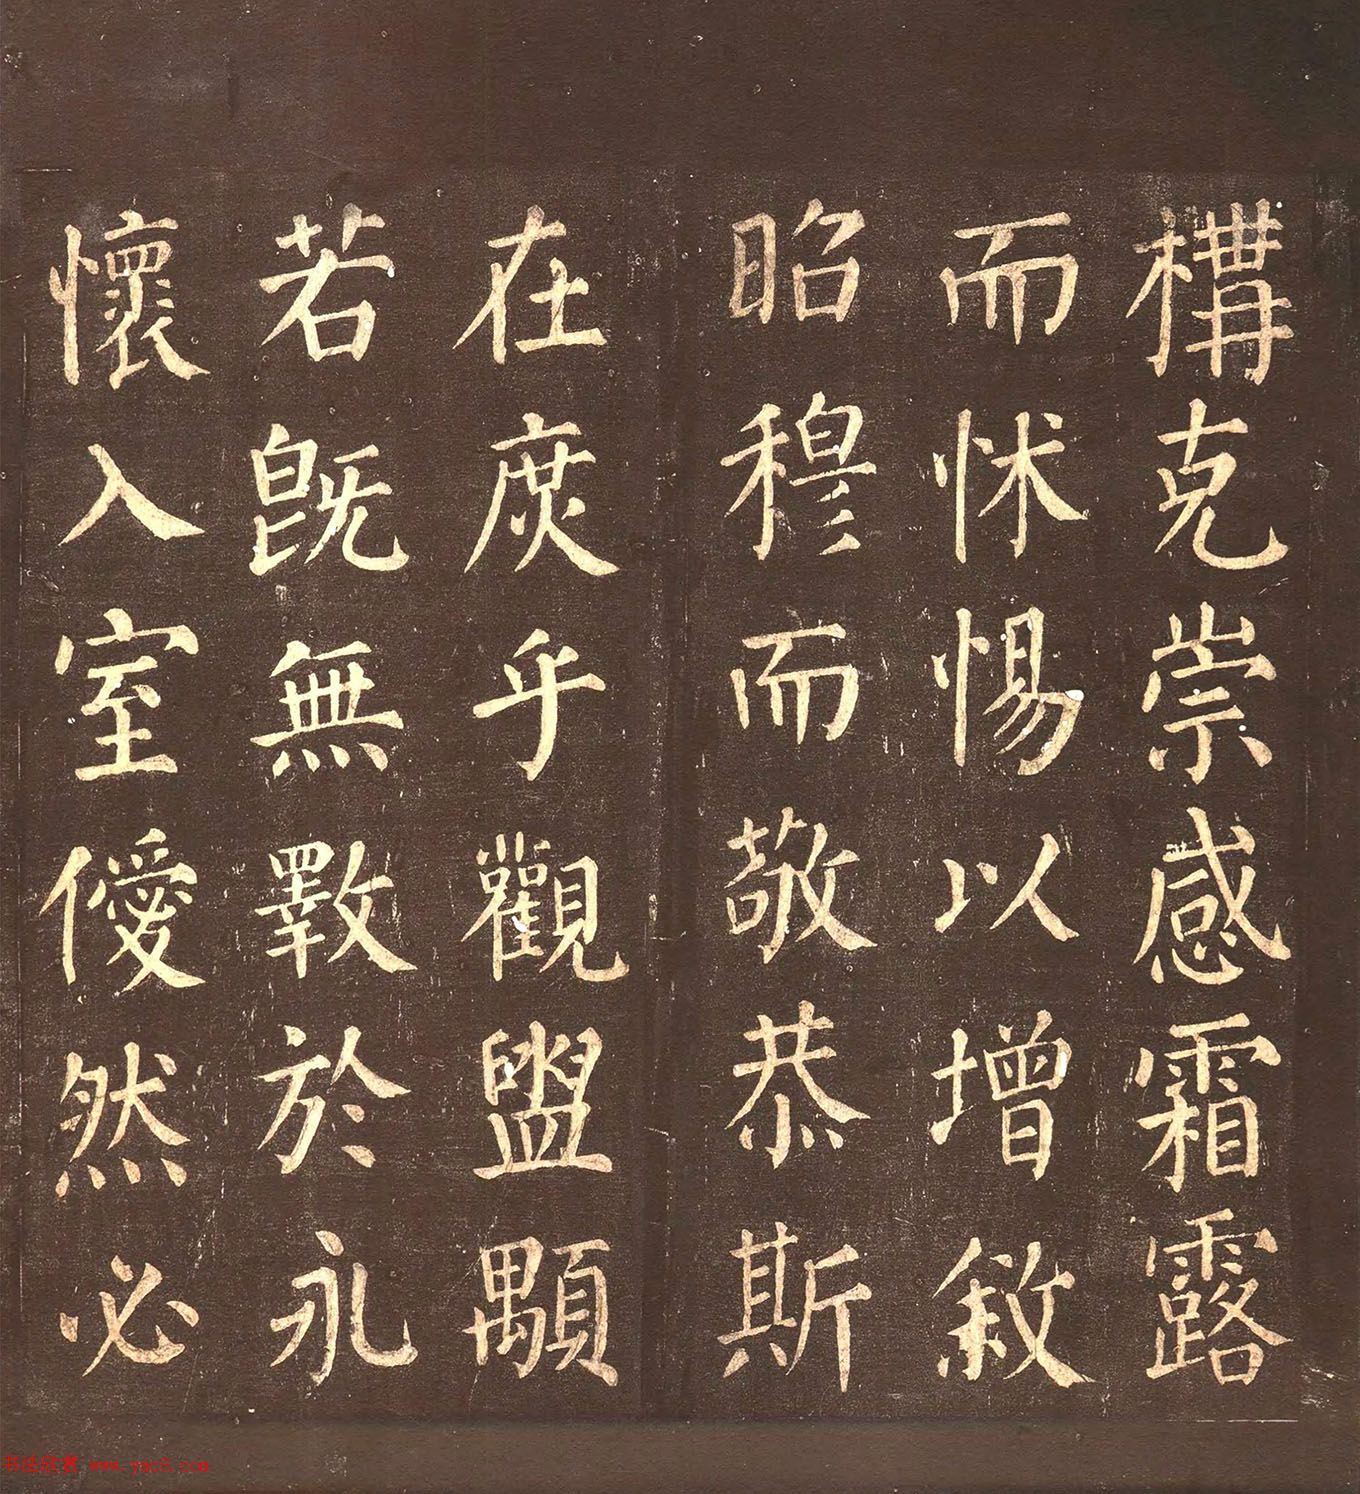 構克崇感霜露
而怵惕以增敘
昭穆而敬恭斯
在庶乎觀盥顒
若既無斁於永
懷入室僾然必
书法欣赏 www.yac8.com